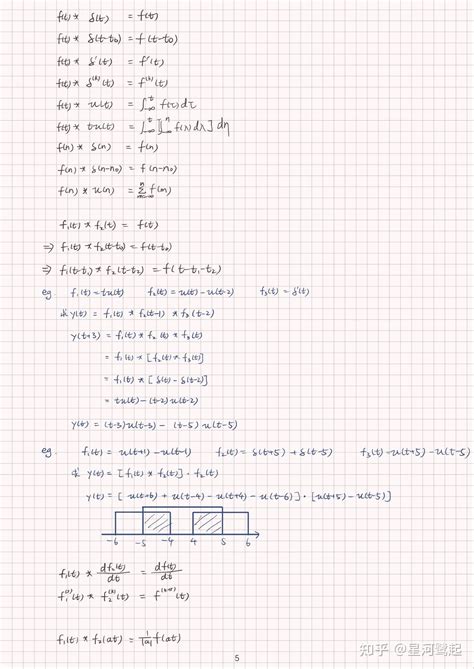 f(t) * δ(t) = f(t)
f(t) * δ(t-t₀) = f(t-t₀)
f(t) * δ'(t) = f'(t)
f(t) * δ⁽ᵏ⁾(t) = f⁽ᵏ⁾(t)
f(t) * u(t) = ∫₋∞ᵗ f(τ)dτ
f(t) * tu(t) = ∫₋∞ᵗ[∫₋∞^η f(λ)dλ]dη
f(n) * δ(n) = f(n)
f(n) * δ(n-n₀) = f(n-n₀)
f(n) * u(n) = Σₘ₌₋∞ⁿ f(m)
f₁(t) * f₂(t) = f(t)
⇒ f₁(t) * f₂(t-t₀) = f(t-t₀)
⇒ f₁(t-t₁) * f₂(t-t₂) = f(t-t₁-t₂)
eg. f₁(t)=tu(t) f₂(t)=u(t)-u(t-2) f₃(t)=δ'(t)
求 y(t) = f₁(t) * f₂(t-1) * f₃(t-2)
y(t+3) = f₁(t) * f₂(t) * f₃(t)
= f₁(t) * [f₂(t) * f₃(t)]
= f₁(t) * [δ(t)-δ(t-2)]
= tu(t)-(t-2)u(t-2)
y(t) = (t-3)u(t-3) - (t-5)u(t-5)
eg. f₁(t) = u(t+1)-u(t-1) f₂(t) = δ(t+5)+δ(t-5) f₃(t)=u(t+5)-u(t-5)
求 y(t) = [f₁(t) * f₂(t)]·f₂(t)
y(t) = [u(t+6)+u(t-4)-u(t+4)-u(t-6)]·[u(t+5)-u(t-5)]
-6 -5 -4 4 5 6
f₁(t) * df₂(t)/dt = df(t)/dt
f₂⁽ᵏ⁾(t)
f₁(t) * f₂(at) = 1/|a| f(at)
5
知乎 @星河鹭起